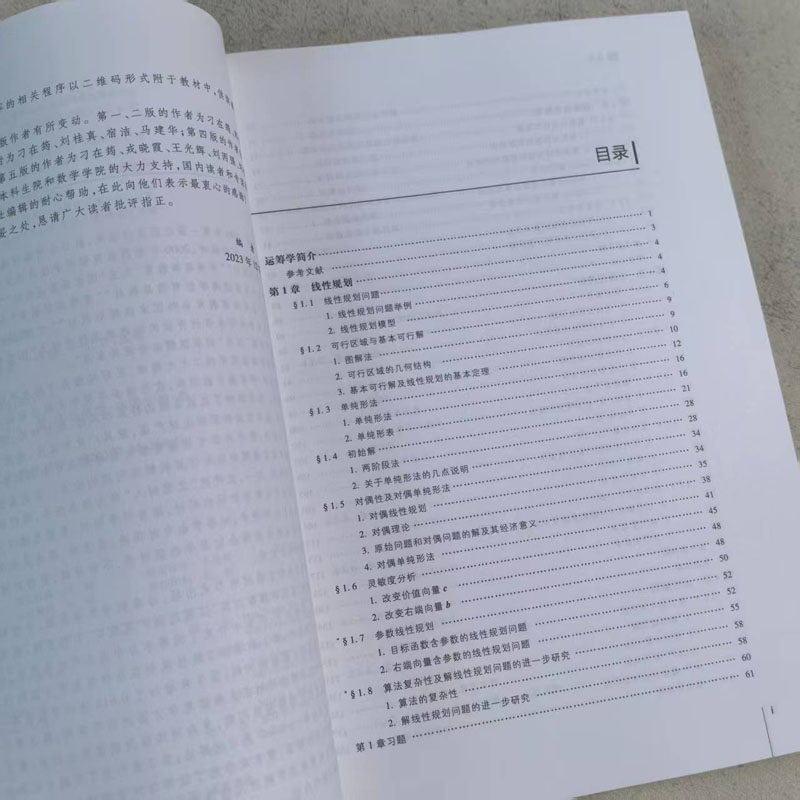 的相关程序以二维码形式附于教材中,供
版作者有所变动。第一、二版的作者为刁在筠
者为刁在筠、刘桂真、宿洁、马建华;第四版的作
第五版的作者为刁在筠、戎晓霞、王光辉、
本科生院和数学学院的大力支持,国内读者和
编辑的耐心帮助,在此向他们表示最衷心的
之处,恳请广大读者批评指正。
编
2023年
目录
运筹学简介 1
参考文献 3
第1章 线性规划 4
§1.1 线性规划问题 4
1. 线性规划问题举例 4
2. 线性规划模型 6
§1.2 可行区域与基本可行解 9
1. 图解法 9
2. 可行区域的几何结构 10
3. 基本可行解及线性规划的基本定理 12
§1.3 单纯形法 16
1. 单纯形法 16
2. 单纯形表 21
§1.4 初始解 28
1. 两阶段法 28
2. 关于单纯形法的几点说明 34
§1.5 对偶性及对偶单纯形法 34
1. 对偶线性规划 35
2. 对偶理论 38
3. 原始问题和对偶问题的解及其经济意义 41
4. 对偶单纯形法 45
§1.6 灵敏度分析 48
1. 改变价值向量 c 48
2. 改变右端向量 b 50
*§1.7 参数线性规划 52
1. 目标函数含参数的线性规划问题 52
2. 右端向量含参数的线性规划问题 55
*§1.8 算法复杂性及解线性规划问题的进一步研究 58
1. 算法的复杂性 58
2. 解线性规划问题的进一步研究 60
第1章习题 61
i